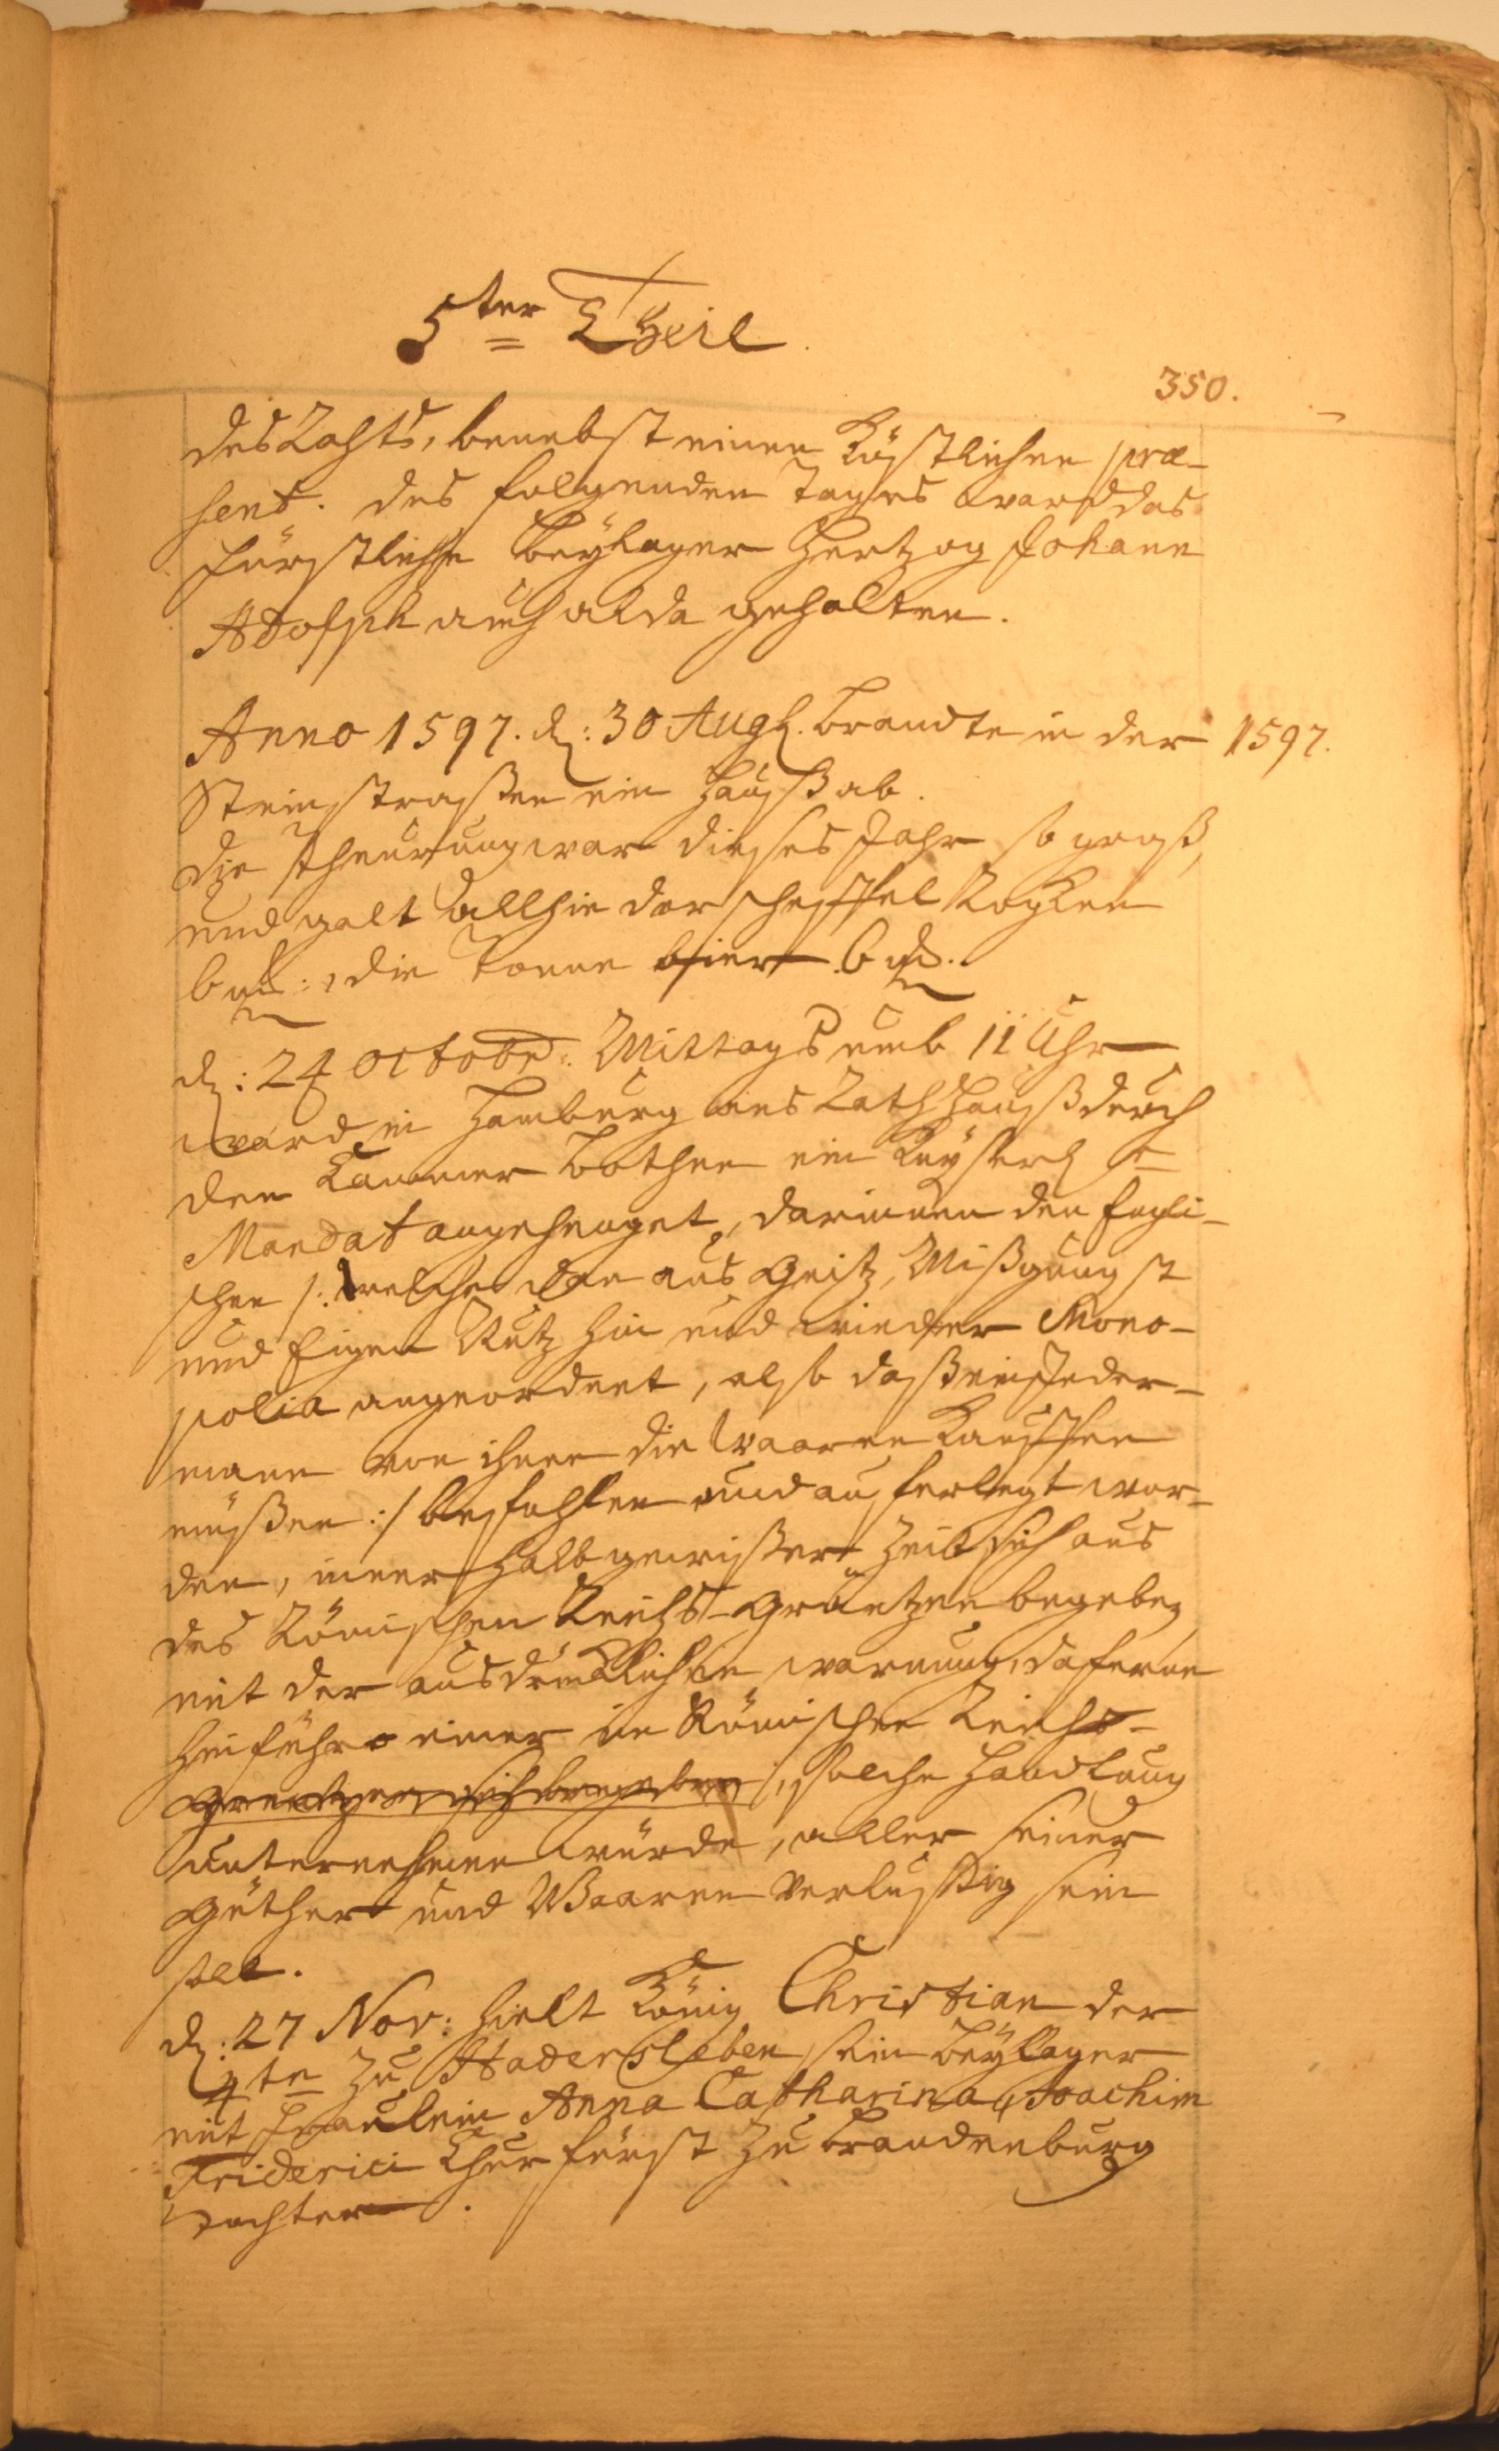 5ter Theil
350.
des Rahts, benebst einen Köstlichen præ-
sent. des folgenden Tages ward das
fürstliche Beÿlager Hertzog Johann
Adolph auch alda gehalten.
Anno 1597. d: 30 Aug. brandte in der
1597.
Steinstraßen ein Hauß ab.
die Theurung war dieses Jahr so groß,
und galt allhie der scheffel Rogken
6 m̃:, die Tonne bier 6 m̃.
d: 24 octobr: Mittags umb 11 Uhr
ward in Hamburg ans Rathhauß durch
den Cammer bothen ein Kaÿserl:
Mandat angehenget, darinnen den Engli-
schen /: welche dan aus Geitz, Mißgunst
und Eigen Nutz hin und wieder Mono-
polia angeordnet, also daß ein Jeder-
mann von ihnen die Waaren Kauffen
müßen :/ befohlen und auferlegt wor-
den, inner halb gewißer Zeit sich aus
des Römischen Reichs-Gräntzen begeben,
mit der ausdrücklichen warnung, daferne
hinführo einer im Römischen Reichs-
Grentzen sich begeben, solche Handlung
unternehmen würde, aller seiner
Güther und Waaren verlustig sein
soll.
d: 27 Nov: hielt König Christian der
4te zu Hadersleben sein beÿlager
mit Fraulein Anna Catharina, Joachim
Friderici Churfürst zu Brandenburg
Tochter.